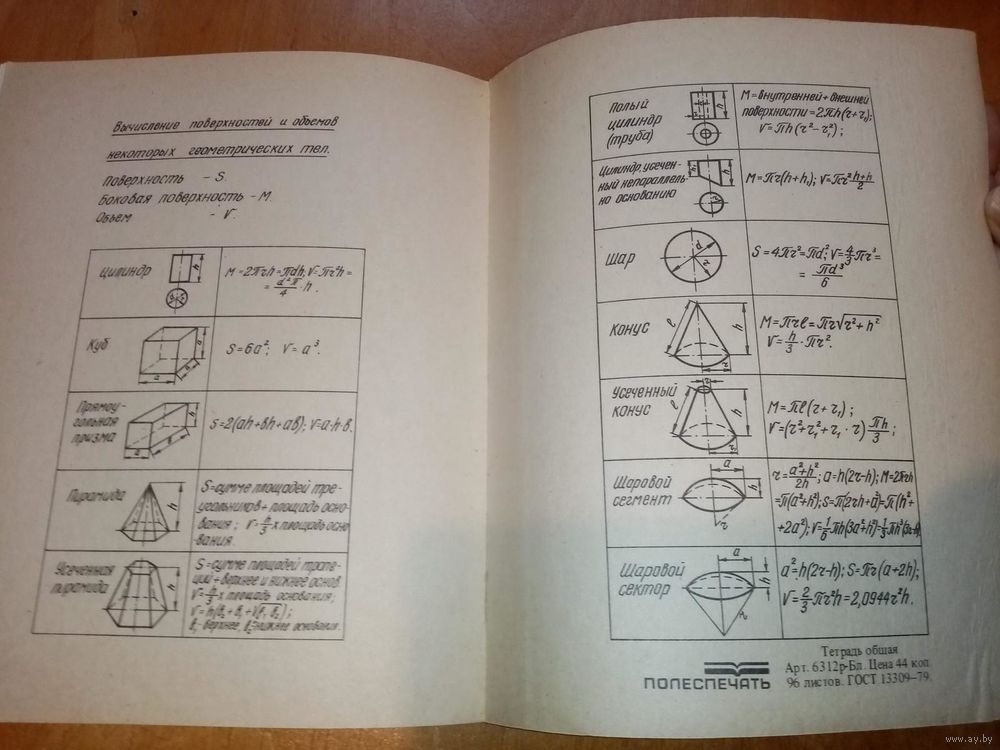 Вычисление поверхностей и объемов
некоторых геометрических тел.
Поверхность – S.
Боковая поверхность – M.
Объем – V.
Цилиндр
h
M=2πrh=πdh; V=πr²h=
= d²π/4 · h.
Куб
a
a
a
S=6a²; V=a³.
Прямоу-
гольная
призма
h
a
S=2(ah+bh+ab); V=a·h·b.
Пирамида
h
S=сумме площадей тре-
угольников+площадь осно-
вания; V=h/3 x площадь осно-
вания.
Усеченная
пирамида
h
S=сумме площадей трапе-
ций+верхнее и нижнее основ.
x площадь основания;
верхнее, нижнее основания.
Полый
цилиндр
(труба)
h
M=внутренней+внешней
поверхности=2πh(r+r₁);
V=πh(r²-r₁²);
Цилиндр, усечен-
ный непараллель-
но основанию
h₁
h
M=πr(h+h₁); V=πr² h+h/2
Шар
d
r
S=4πr²=πd²; V=4/3πr³=
= πd³/6
Конус
ℓ
h
r
M=πrℓ=πr√r²+h²
V=h/3·πr².
Усеченный
конус
r
ℓ
h
r₁
M=πℓ(r+r₁);
V=(r²+r₁²+r₁·r) πh/3;
Шаровой
сегмент
a
h
r
r=a²+h²/2h; a=h(2r-h); M=2πrh
=π(a²+h²); S=π(2rh+a²)=π(h²+
+2a²); V=1/6πh(3a²+h²)=1/3πh²(3r-h)
Шаровой
сектор
a
h
r
a²=h(2r-h); S=πr(a+2h);
V=2/3πr²h=2,0944r²h.
ПОЛЕСПЕЧАТЬ
Тетрадь общая
Арт. 6312р-Бл. Цена 44 коп.
96 листов. ГОСТ 13309–79.
www.ay.by